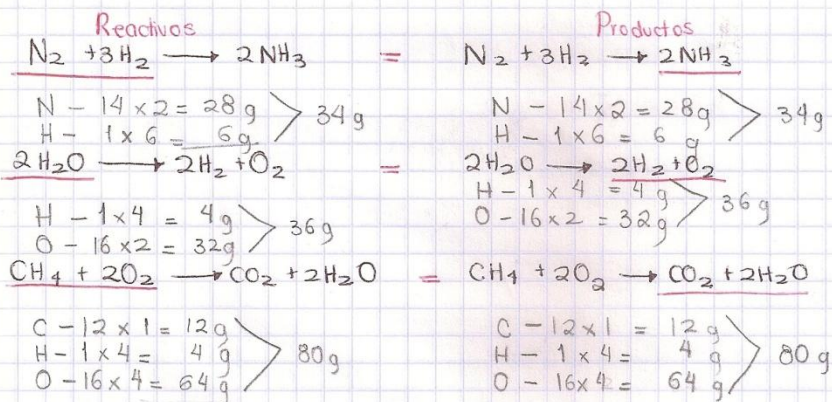 Reactivos
N₂ + 3H₂ → 2NH₃ =
N - 14 x 2 = 28 g
H - 1 x 6 = 6 g
34 g
2H₂O → 2H₂ + O₂ =
H - 1 x 4 = 4 g
O - 16 x 2 = 32 g
36 g
CH₄ + 2O₂ → CO₂ + 2H₂O =
C - 12 x 1 = 12 g
H - 1 x 4 = 4 g
O - 16 x 4 = 64 g
80 g
Productos
N₂ + 3H₂ → 2NH₃
N - 14 x 2 = 28 g
H - 1 x 6 = 6 g
34 g
2H₂O → 2H₂ + O₂
H - 1 x 4 = 4 g
O - 16 x 2 = 32 g
36 g
CH₄ + 2O₂ → CO₂ + 2H₂O
C - 12 x 1 = 12 g
H - 1 x 4 = 4 g
O - 16 x 4 = 64 g
80 g